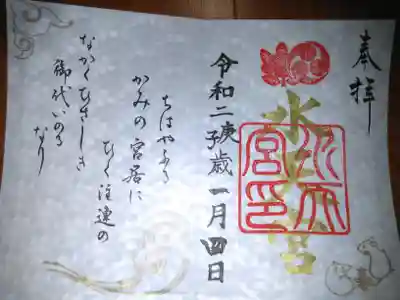 奉拝
水天宮
水天宮印
令和二庚子歳一月四日
ちはやふる
かみの宮居に
ひく注連の
なかくひさしき
御代いのる
なり